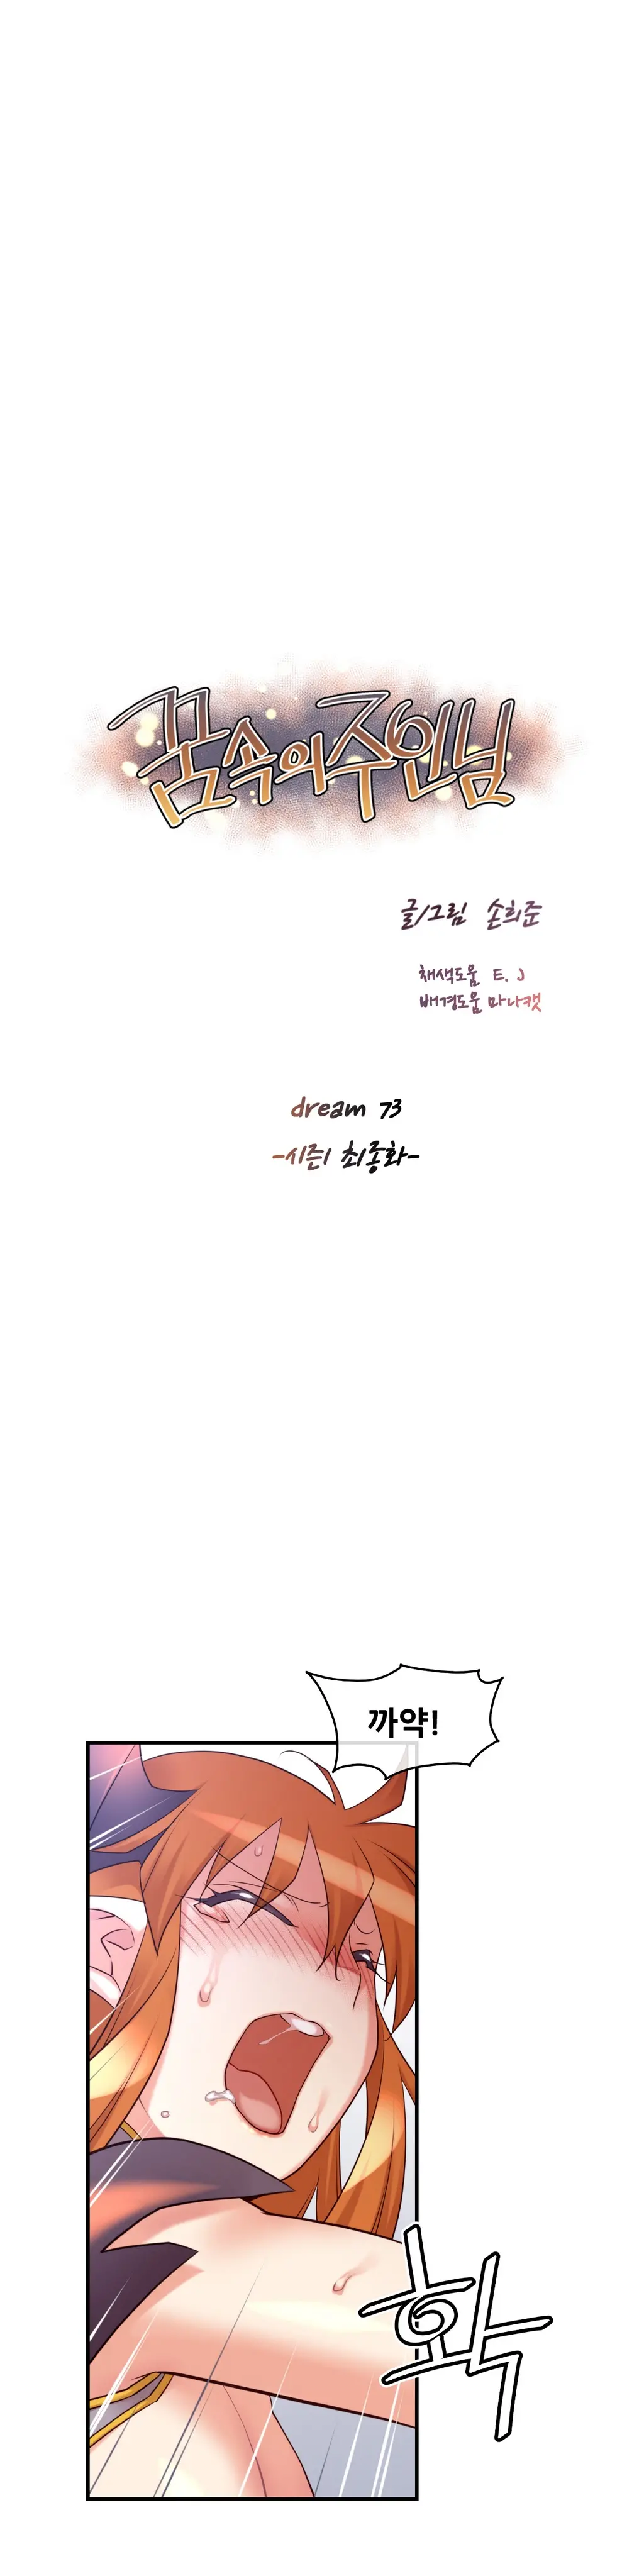 꿈속의 주인님
글/그림 손희준
채색도움 E. J
배경도움 마나캣
dream 73
-시즌1 최종화-
까약!
확